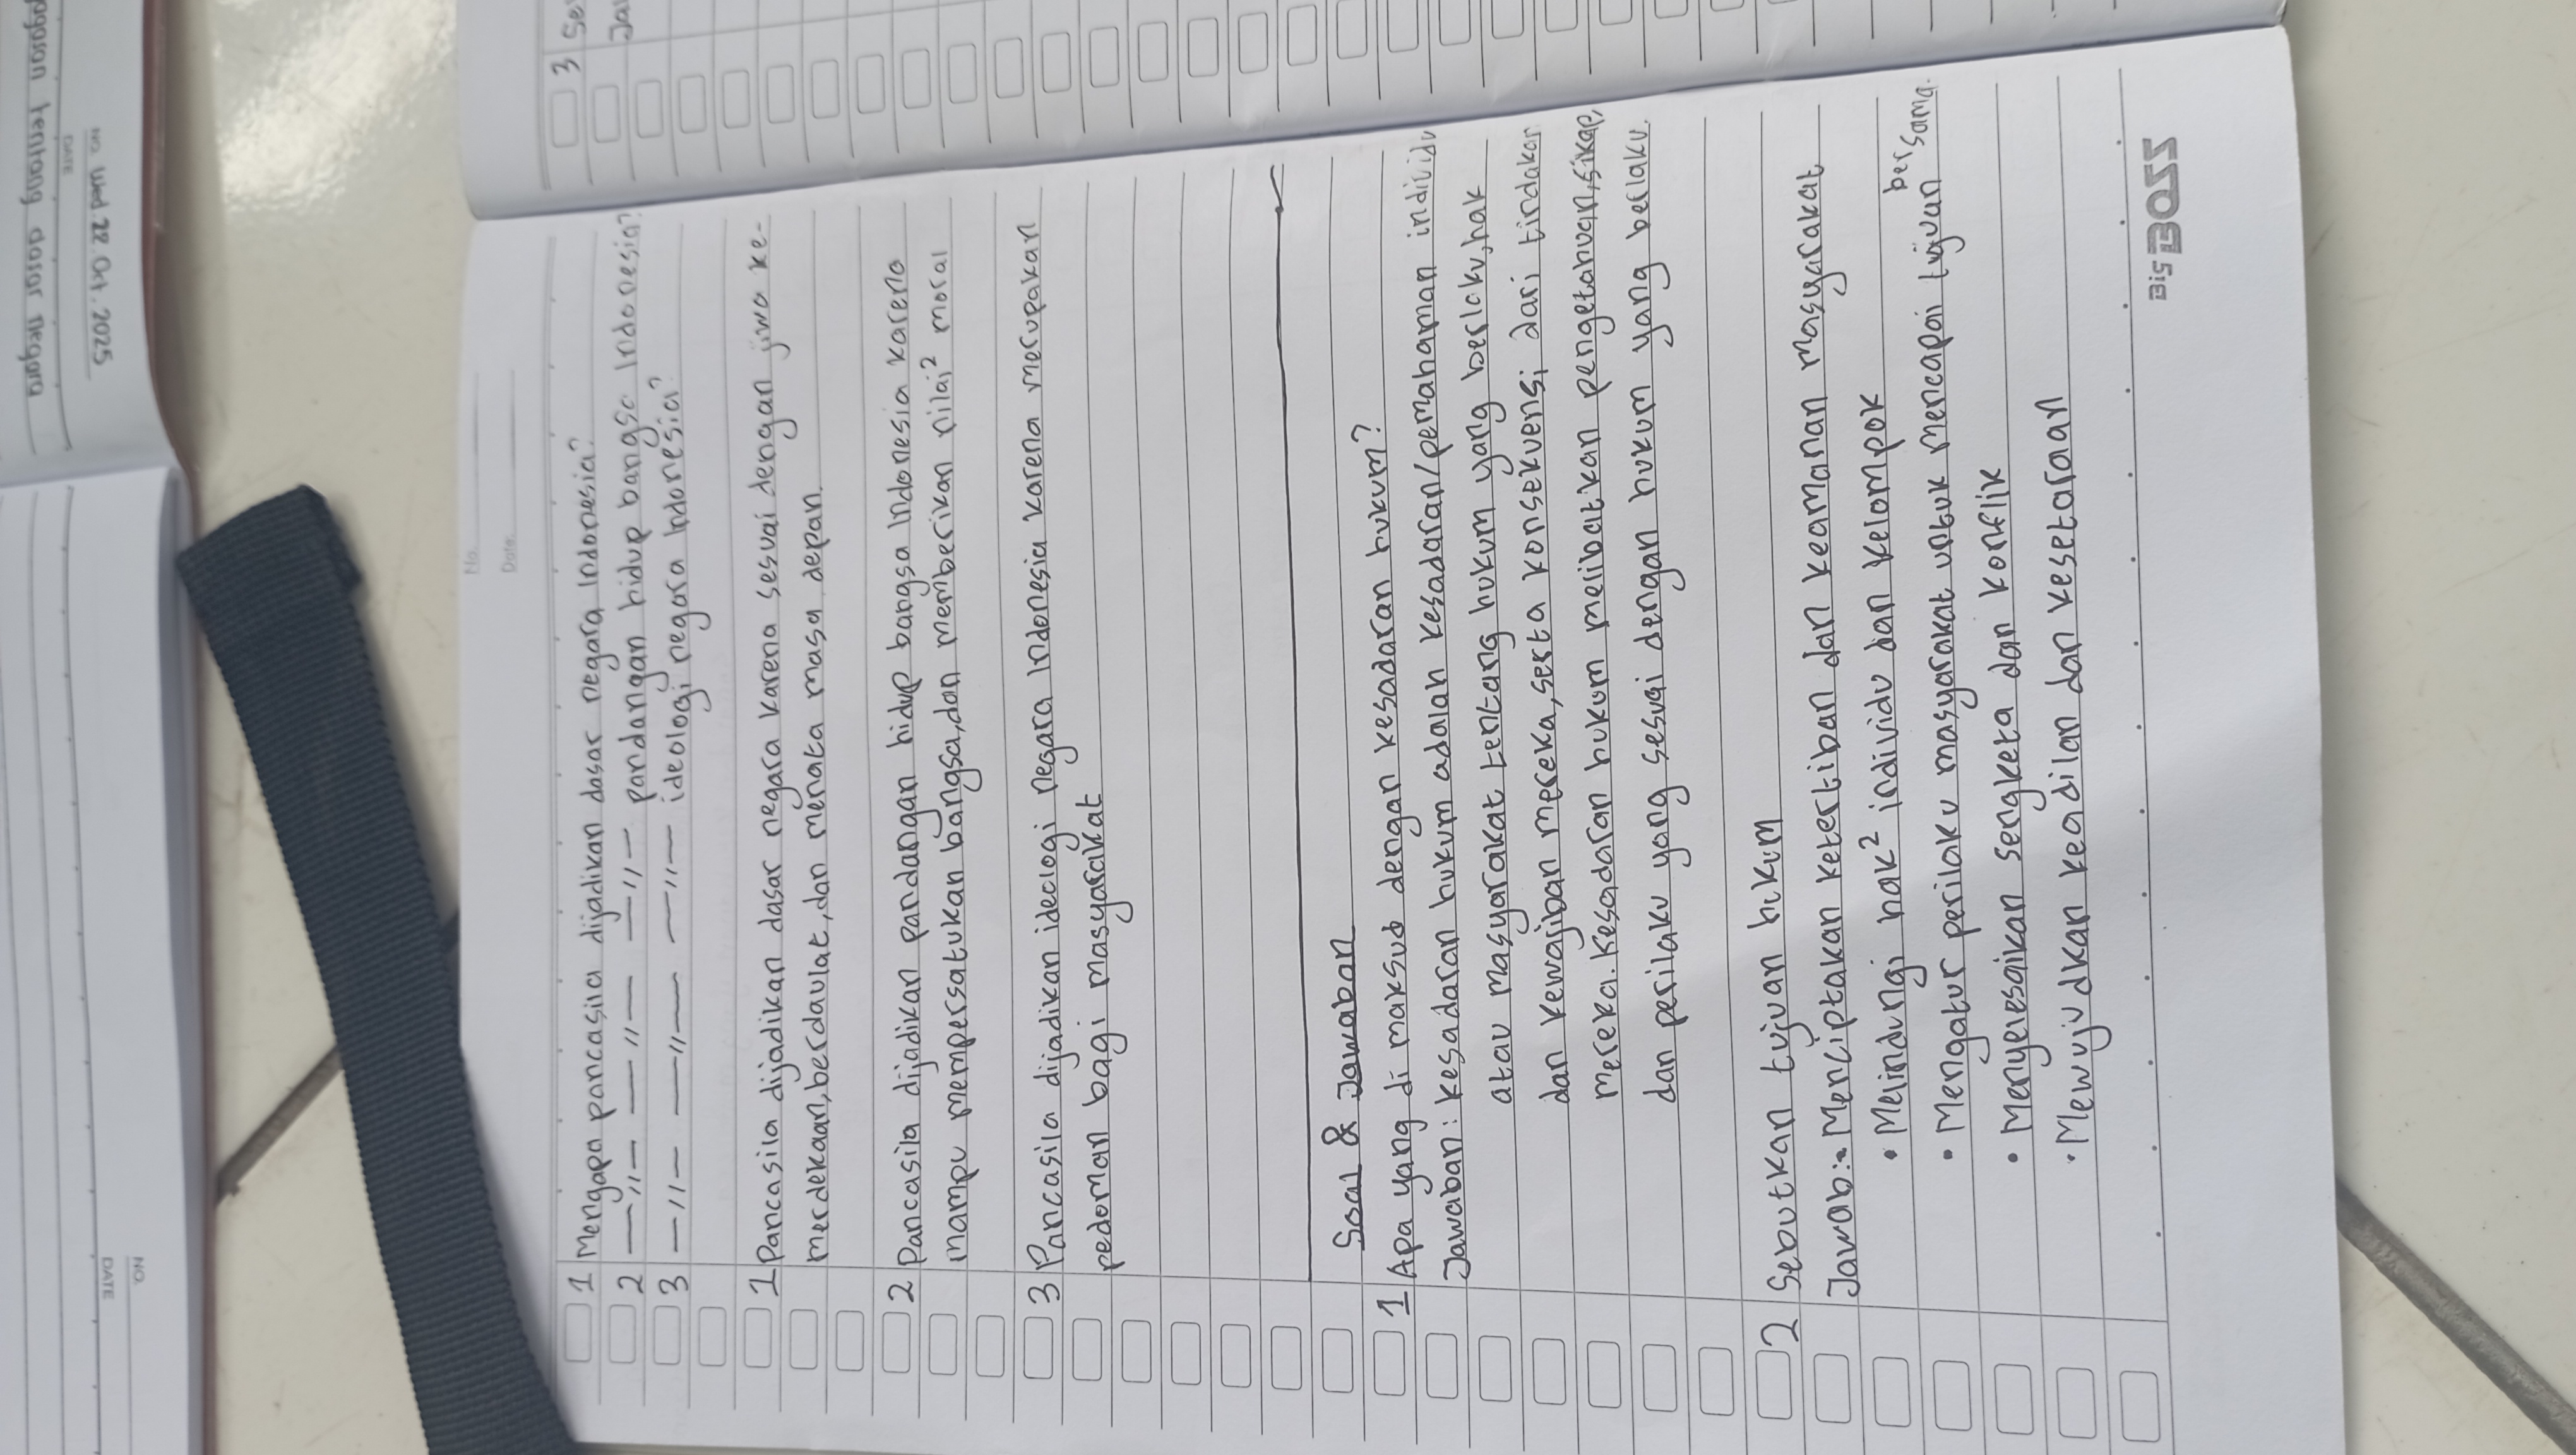 No.
Date.
1 Mengapa pancasila dijadikan dasar negara Indonesia?
2 —〃— —〃— —〃— pandangan hidup bangsa Indonesia?
3 —〃— —〃— —〃— ideologi negara Indonesia?
1 Pancasila dijadikan dasar negara karena sesuai dengan jiwa ke-
merdekaan, berdaulat, dan menata masa depan.
2 Pancasila dijadikan pandangan hidup bangsa Indonesia karena
mampu mempersatukan bangsa, dan memberikan nilai² moral
3 Pancasila dijadikan ideologi negara Indonesia karena merupakan
pedoman bagi masyarakat
Soal & Jawaban
1 Apa yang di maksud dengan kesadaran hukum?
Jawaban: kesadaran hukum adalah kesadaran/pemahaman individu
atau masyarakat tentang hukum yang berlaku, hak
dan kewajiban mereka, serta konsekuensi dari tindakan
mereka. Kesadaran hukum melibatkan pengetahuan, sikap,
dan perilaku yang sesuai dengan hukum yang berlaku.
2 Sebutkan tujuan hukum
Jawab: • Menciptakan ketertiban dan keamanan masyarakat
• Melindungi hak² individu dan kelompok
• Mengatur perilaku masyarakat untuk mencapai tujuan bersama.
• Menyelesaikan sengketa dan konflik
• Mewujudkan keadilan dan kesetaraan
Big BOSS
3 Se
Ja
NO. Wed. 22. Oct. 2025
DATE
tentang dasar negara
NO.
DATE